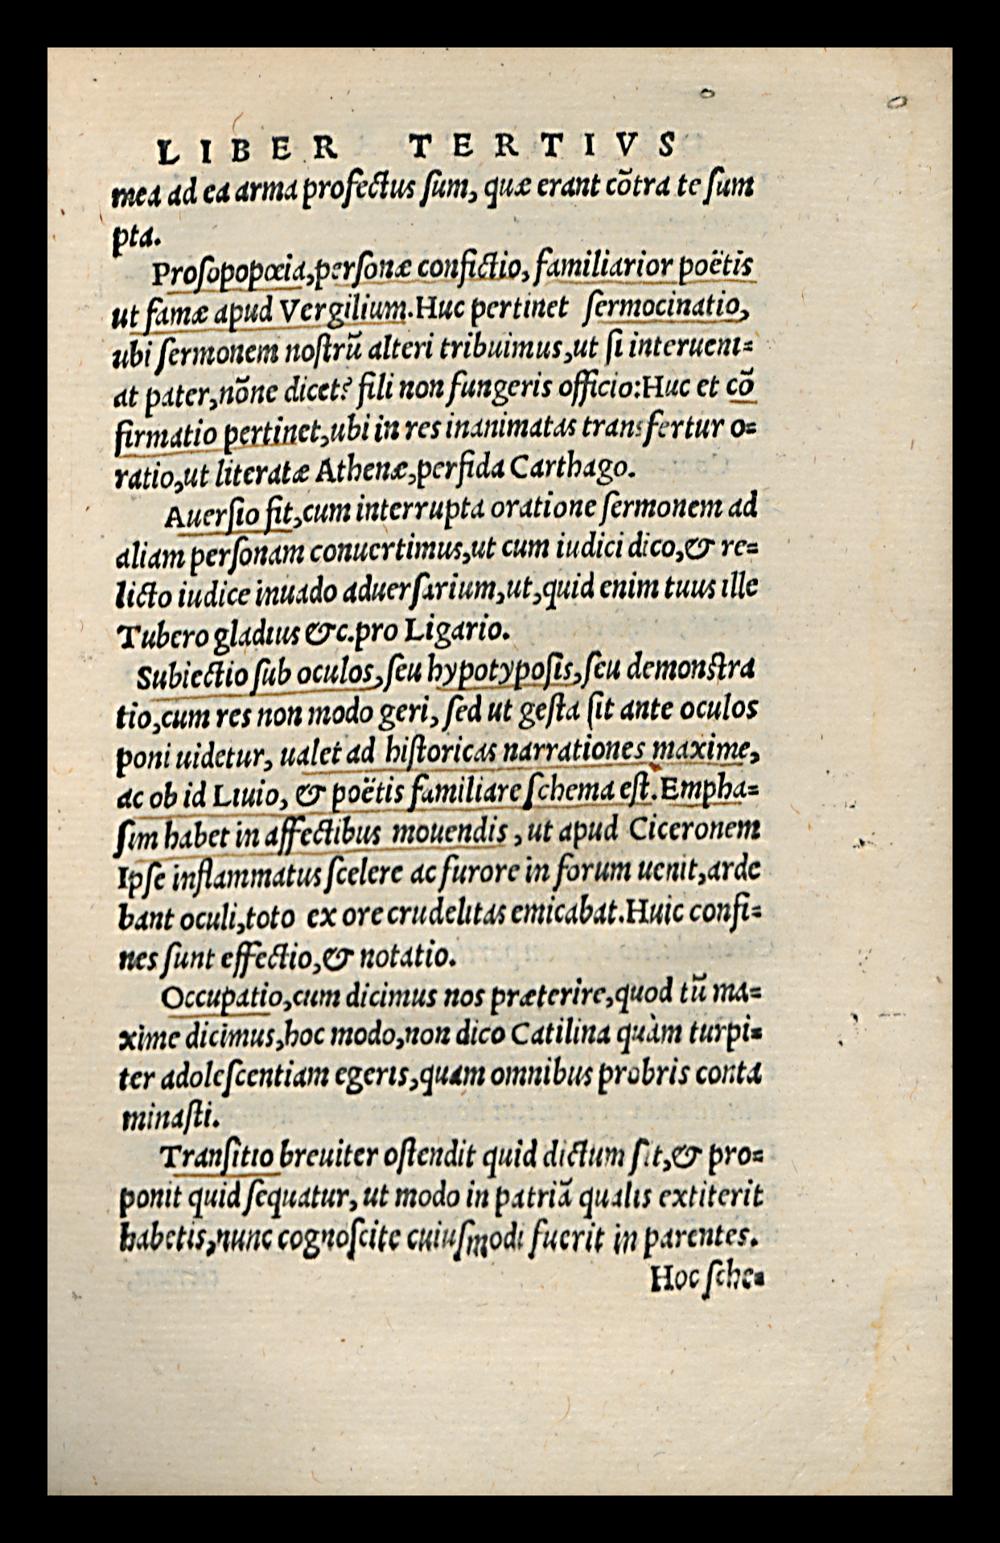 LIBER TERTIVS
mea ad ea arma profectus ſum, quæ erant cõtra te ſum
pta.
Proſopopœia,perſonæ confictio, familiarior poëtis
ut famæ apud Vergilium.Huc pertinet ſermocinatio,
ubi ſermonem noſtrũ alteri tribuimus,ut ſi interueni=
at pater,nõne dicet? fili non fungeris officio:Huc et cõ
firmatio pertinet,ubi in res inanimatas transfertur o=
ratio,ut literatæ Athenæ,perfida Carthago.
Auerſio fit,cum interrupta oratione ſermonem ad
aliam perſonam conuertimus,ut cum iudici dico,& re=
licto iudice inuado aduerſarium,ut,quid enim tuus ille
Tubero gladius &c.pro Ligario.
Subiectio ſub oculos,ſeu hypotypoſis,ſeu demonſtra
tio,cum res non modo geri, ſed ut geſta ſit ante oculos
poni uidetur, ualet ad hiſtoricas narrationes maxime,
ac ob id Liuio, & poëtis familiare ſchema eſt.Empha=
ſim habet in affectibus mouendis , ut apud Ciceronem
Ipſe inflammatus ſcelere ac furore in forum uenit,arde
bant oculi,toto ex ore crudelitas emicabat.Huic confi=
nes ſunt effectio,& notatio.
Occupatio,cum dicimus nos præterire,quod tũ ma=
xime dicimus,hoc modo,non dico Catilina quàm turpi=
ter adoleſcentiam egeris,quam omnibus probris conta
minaſti.
Tranſitio breuiter oſtendit quid dictum ſit,& pro=
ponit quid ſequatur, ut modo in patriã qualis extiterit
habetis,nunc cognoſcite cuiuſmodi fuerit in parentes.
Hoc ſche=